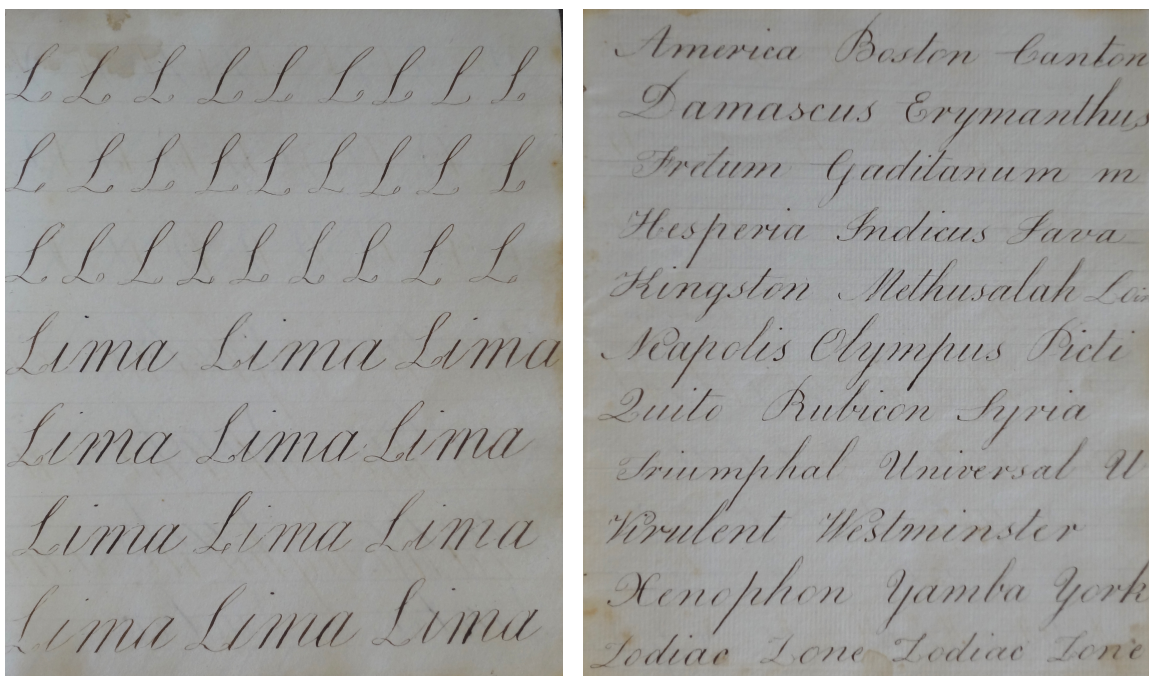 L L L L L L L L L
L L L L L L L L L
L L L L L L L L L
Lima Lima Lima
Lima Lima Lima
Lima Lima Lima
Lima Lima Lima
America Boston Canton
Damascus Erymanthus
Fretum Gaditanum m
Hesperia Indicus Java
Kingston Methusalah
Neapolis Olympus Picti
Quito Rubicon Syria
Triumphal Universal U
Virulent Westminster
Xenophon Yamba York
Zodiac Zone Zodiac Zone